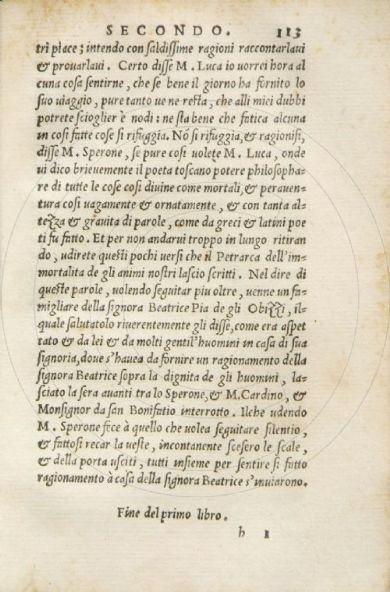 SECONDO. 113
tri piace; intendo con saldissime ragioni raccontarlaui
& prouarlaui. Certo disse M. Luca io uorrei hora al
cuna cosa sentirne, che se bene il giorno ha fornito lo
suo uiaggio, pure tanto ue ne resta, che alli miei dubbi
potrete scioglier è nodi: ne sta bene che fatica alcuna
in cosi fatte cose si rifuggia. Nõ si rifuggia, & ragionisi,
disse M. Sperone, se pure cosi uolete M. Luca, onde
ui dico brieuemente il poeta toscano potere philosopha-
re di tutte le cose cosi diuine come mortali, & perauen-
tura cosi uagamente & ornatamente, & con tanta al-
tezza & grauita di parole, come da greci & latini poe
ti fu fatto. Et per non andarui troppo in lungo ritiran
do, udirete questi pochi uersi che il Petrarca dell'im-
mortalita de gli animi nostri lascio scritti. Nel dire di
queste parole, uolendo seguitar piu oltre, uenne un fa-
migliare della signora Beatrice Pia de gli Obizzi, il-
quale salutatolo riuerentemente gli disse, come era aspet
tato & da lei & da molti gentil'huomini in casa di sua
signoria, doue s'haueua da fornire un ragionamento della
signora Beatrice sopra la dignita de gli huomini, la-
sciato la sera auanti tra lo Sperone, & M. Cardino, &
Monsignor da san Bonifatio interrotto. Ilche udendo
M. Sperone fece à quello che uolea seguitare silentio,
& fattosi recar la ueste, incontanente scesero le scale,
& della porta usciti, tutti insieme per sentire si fatto
ragionamento à casa della signora Beatrice s'inuiarono.
Fine del primo libro.
h 1